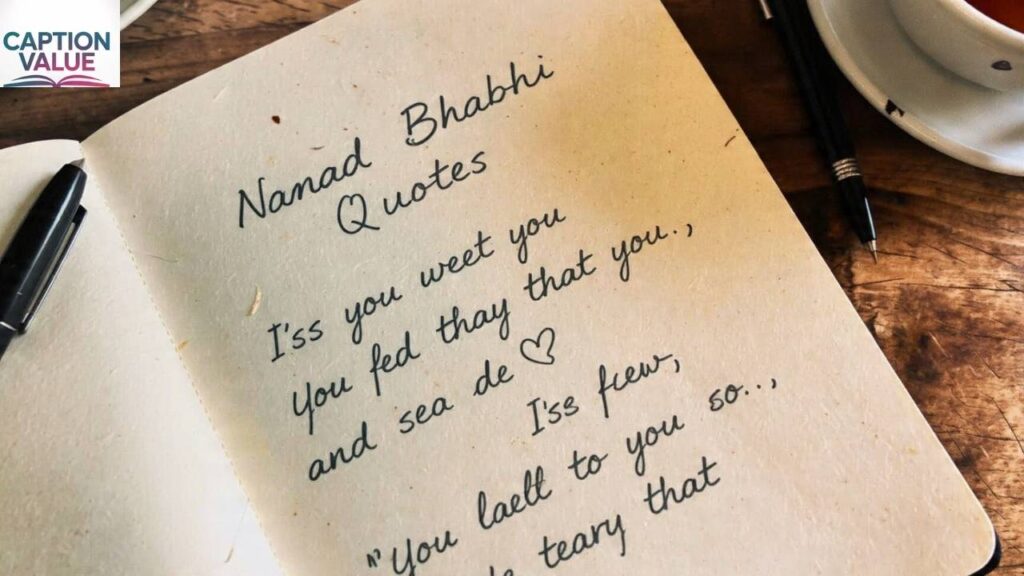 CAPTION
VALUE
Nanad Bhabhi
Quotes
I'ss you weet you
you fed thay that you.,
and sea de
I'ss few,
"You laelt to you so..,
teary that